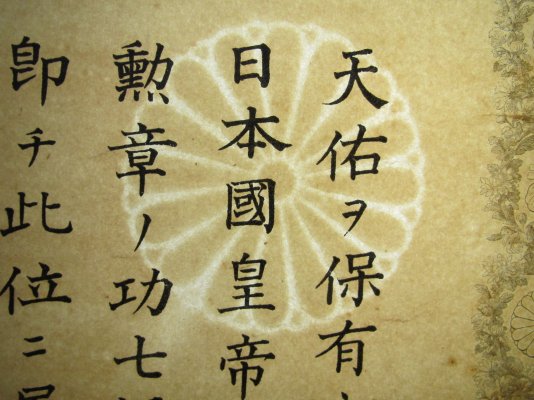 天佑ヲ保有
日本國皇帝
勲章ノ功七
即チ此位ニ